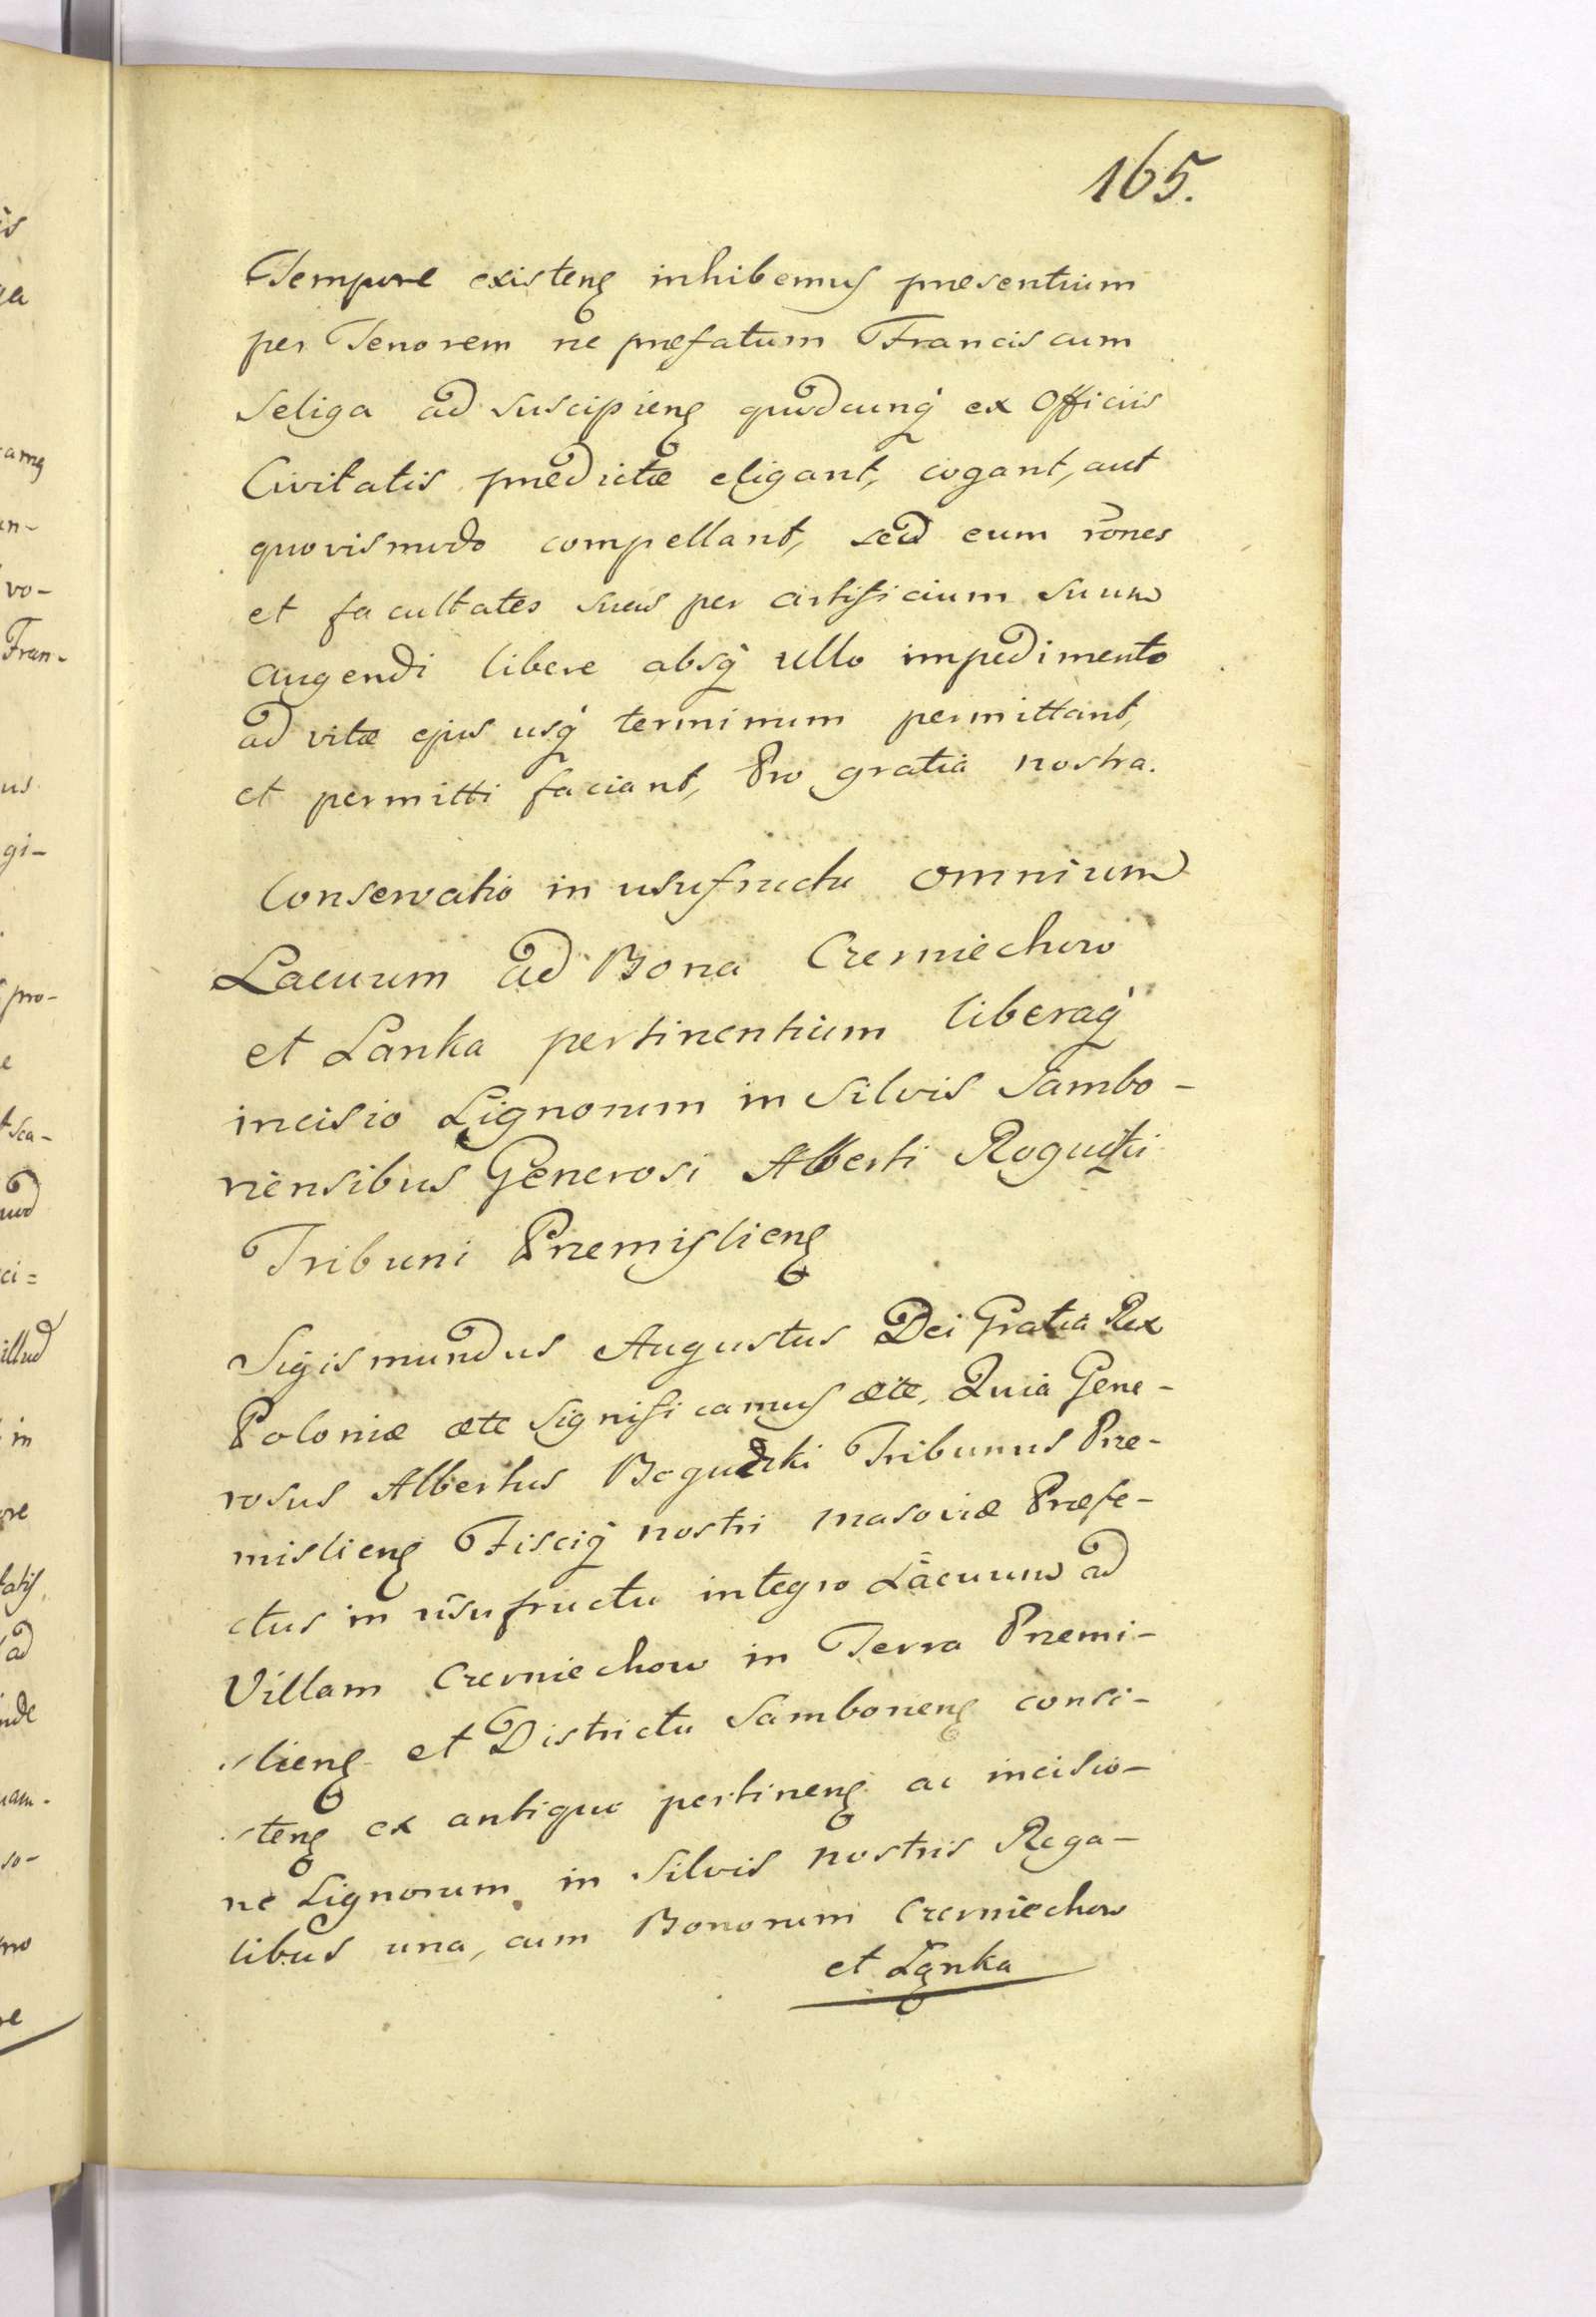 165.
Tempore existenę inhibemus præsentium
per Tenorem ne præfatum Franciscum
Seliga ad suscipienę quodcunq́ ex Officiis
Civitatis prædictæ eligant, cogant, aut
quovismodo compellant, sed eum rōnes
et facultates suas per artificium suum
augendi libere absq́ ullo impedimento
ad vitæ ejus usq́ terminum permittant,
et permitti faciant, Pro gratia nostra.
Conservatio in usufructu omnium
Lacuum ad Bona Czerniechow
et Lanka pertinentium liberaq́
incisio Lignorum in Silvis Sambo-
riensibus Generosi Alberti
Tribuni Præmislienę
Sigismundus Augustus Dei Gratia Rex
Poloniæ ætc significamus ætc, Quia Gene-
rosus Albertus Tribunus Præ-
mislienę Fisciq́ nostri Masoviæ Præfe-
ctus in usufructu integro Lacuum ad
Villam Czerniechow in Terra Premi-
slienę et Districtu Samborienę consi-
stenę ex antiquo pertinenę ac incisio-
ne Lignorum in Silvis nostris Rega-
libus una, cum Bonorum Czerniechow
et Lanka
is
ga
camę
an-
vo-
Fran-
us
gi-
pro-
e
sca-
ci=
illud
in
ore
tatis,
ad
inde
so-